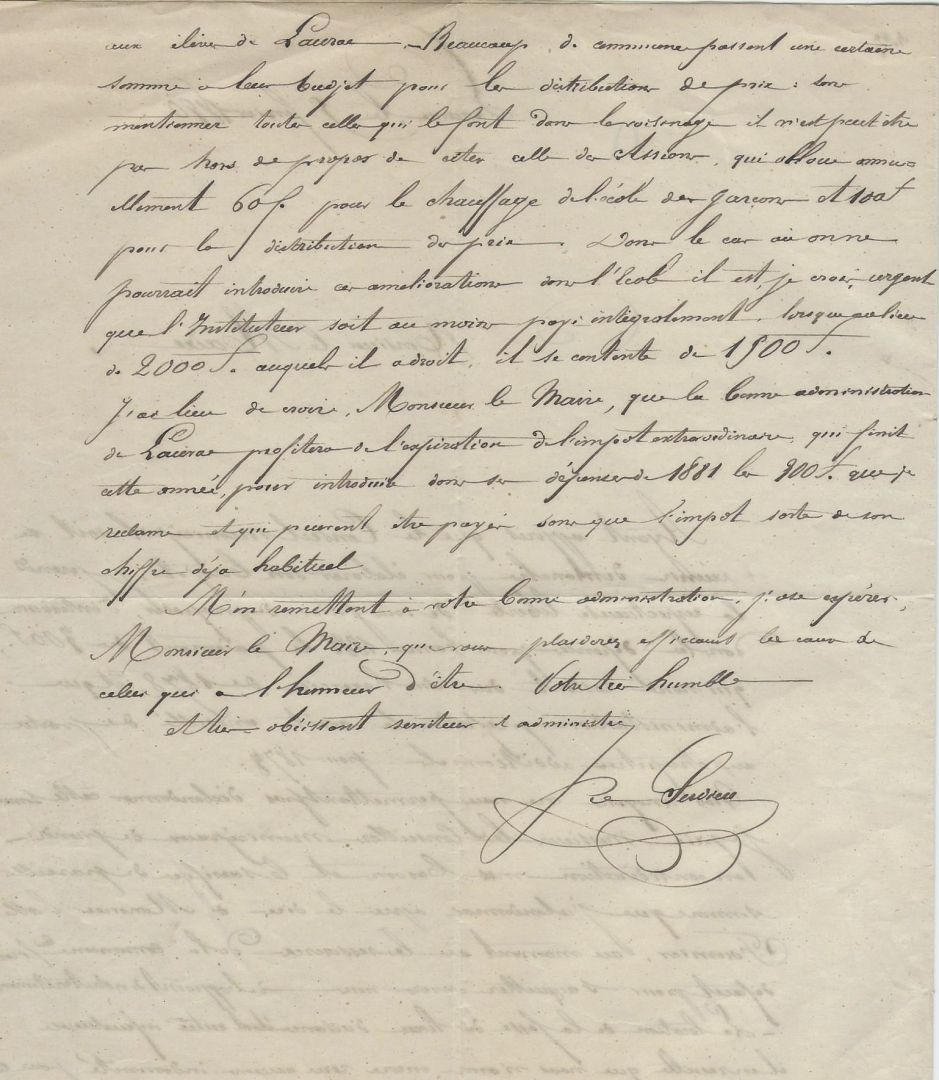 aux élèves de Laurac. Beaucoup de commune passent une certaine
somme à leur budjet pour les distributions de prix : sans
mentionner toutes celles qui le font dans le voisinage il n'est peut être
pas hors de propos de citer celle des Assions, qui alloue annu-
ellement 60f. pour le chauffage de l'école des garçons et 100f
pour la distribution des prix. Dans le cas où on ne
pourrait introduire ces améliorations dans l'école il est, je crois, urgent
que l'Instituteur soit au moins payé intégralement, lorsque au lieu
de 2000f. auquels il a droit, il se contente de 1500f.
J'ai lieu de croire, Monsieur le Maire, que la bonne administration
de Laurac profitera de l'expiration de l'impot extraordinaire, qui finit
cette année, pour introduire dans ses dépenses de 1881 les 300f. que je
reclame et qui peuvent être payés sans que l'impot sorte de son
chiffre déja habituel
M'en remettant à votre bonne administration, j'ose espérer,
Monsieur le Maire, que vous plaiderez efficacement la cause de
celui qui a l'honneur d'être Votre très humble
et très obéissant serviteur & administré